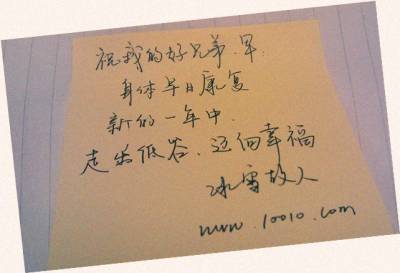 祝我的好兄弟.军.
身体早日康复
新的一年中.
走出低谷.迈向幸福
冰雪故人
www.10010.com